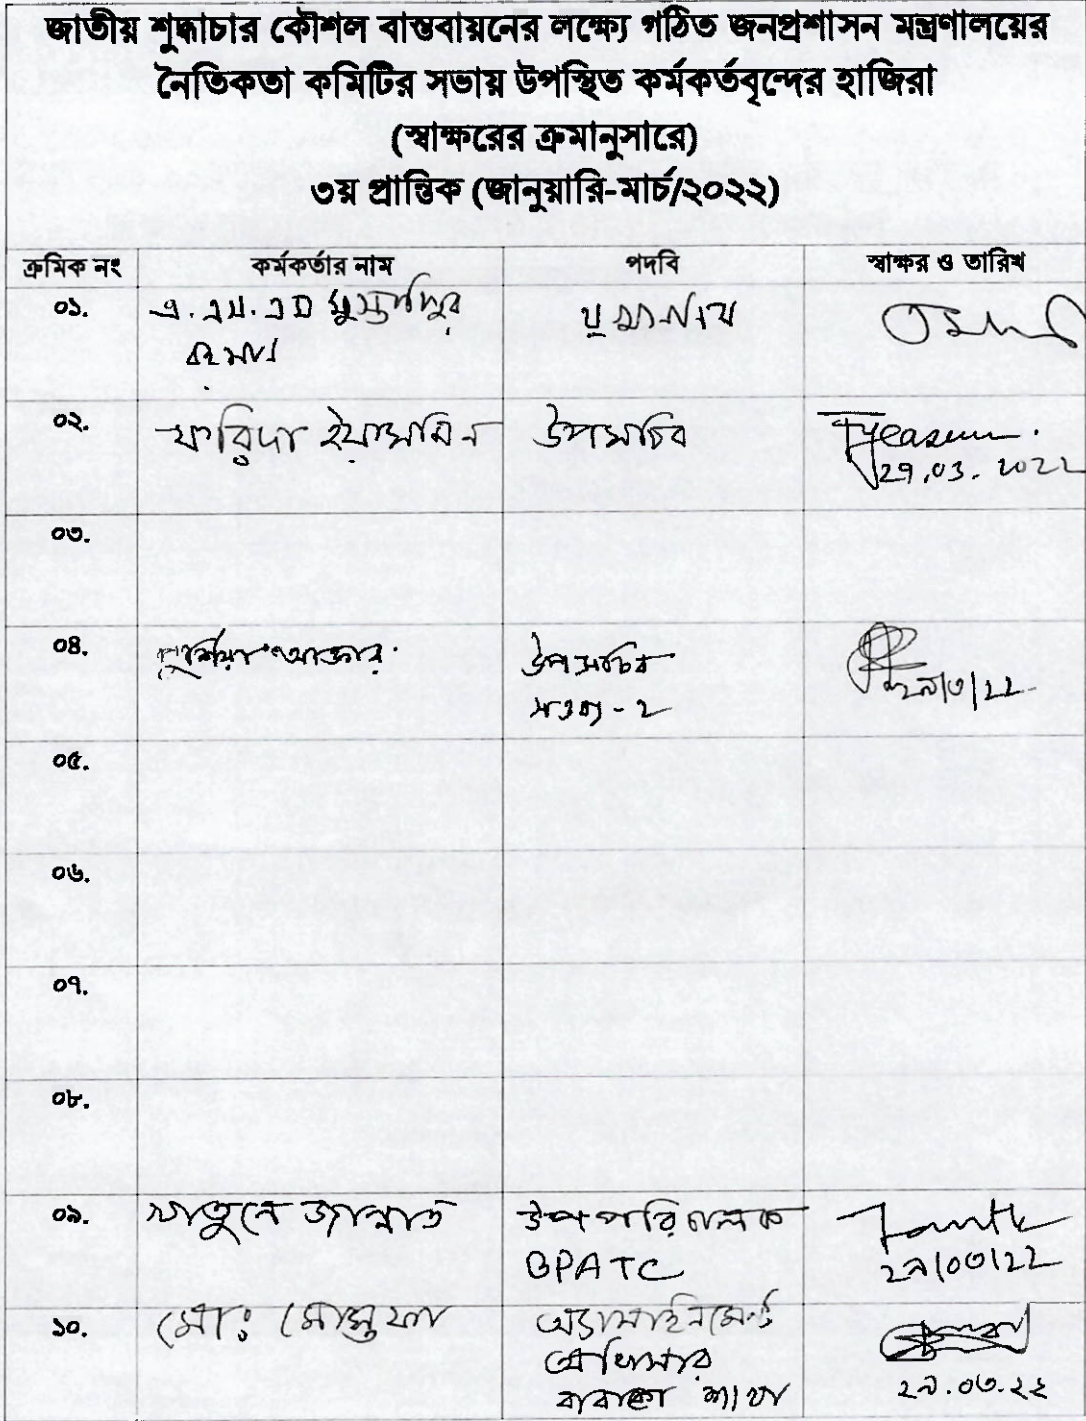 জাতীয় শুদ্ধাচার কৌশল বাস্তবায়নের লক্ষ্যে গঠিত জনপ্রশাসন মন্ত্রণালয়ের
নৈতিকতা কমিটির সভায় উপস্থিত কর্মকর্তবৃন্দের হাজিরা
(স্বাক্ষরের ক্রমানুসারে)
৩য় প্রান্তিক (জানুয়ারি-মার্চ/২০২২)
ক্রমিক নং কর্মকর্তার নাম পদবি স্বাক্ষর ও তারিখ
০১. এ.এম.এম
রহমান
০২. ফারিদা ইয়াসমিন উপসচিব Fyeasmin.
29.03.2022
০৩.
০৪. আক্তার উপসচিব
২৯/৩/২২
০৫.
০৬.
০৭.
০৮.
০৯. খাতুনে জান্নাত উপপরিচালক
BPATC ২৯/০৩/২২
১০. মোঃ মোস্তফা অ্যাসাইনমেন্ট
অফিসার
শাখা ২৯.০৩.২২